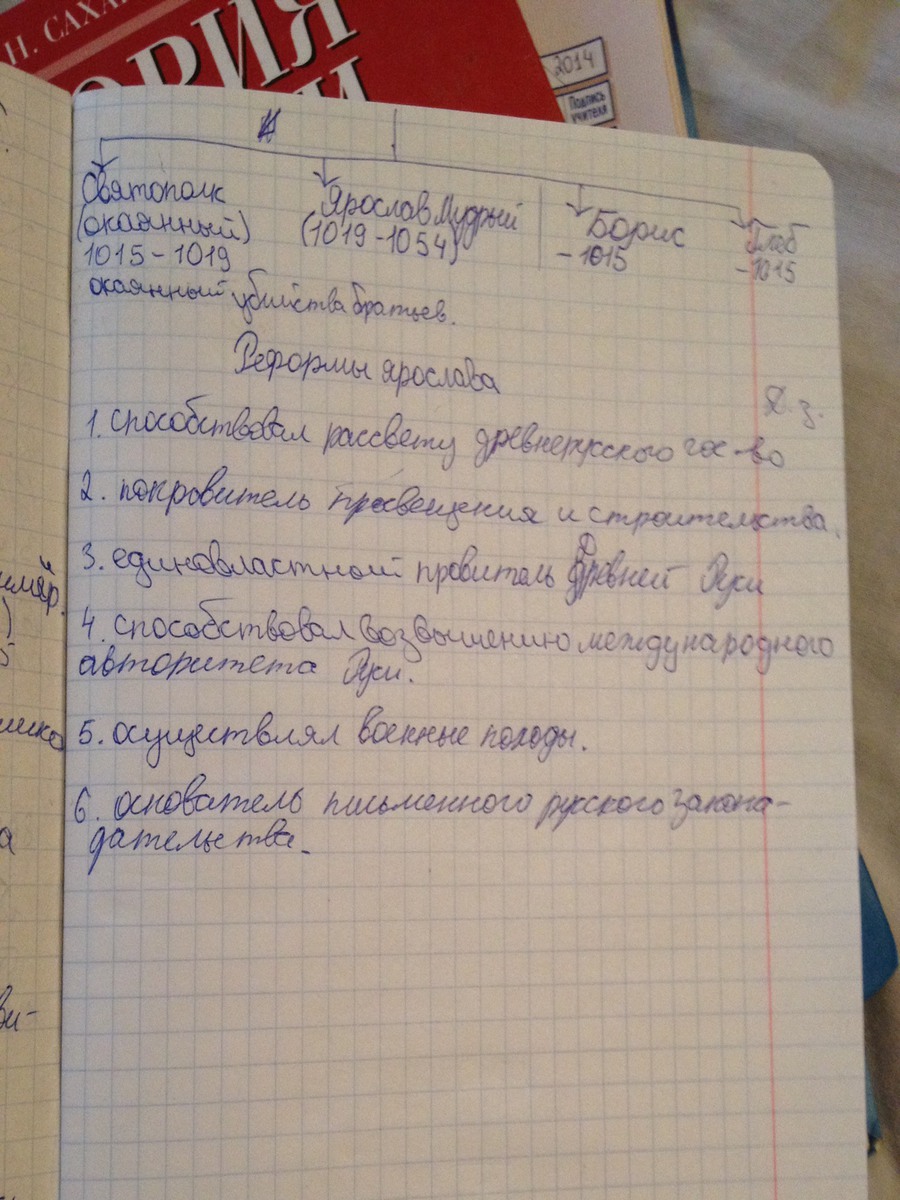 Н. САХА
ОРИЯ
2014
Подпись
учителя
Святополк
(окаянный)
1015-1019
Ярослав Мудрый
(1019-1054)
Борис
-1015
Глеб
-1015
окаянный убийства братьев.
Реформы ярослава
Д.з.
1. способствовал рассвету древнерусского гос-во
2. покровитель просвещения и строительства.
3. единовластной провитель Древней Руси
4. способствовал возвышению международного
авторитета Руси.
5. осуществлял военные походы.
6. основатель письменного русского закона-
дательства.
имар.
)
5
а
ви-